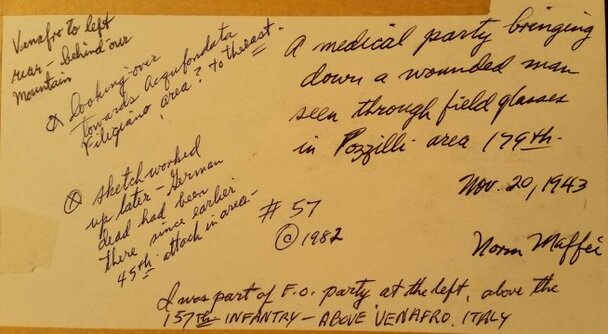 Venafro to left
rear - behind our
Mountain
⊗ looking over
towards Acqufondata
Filigiano area? to the east.
⊗ sketch worked
up later - German
dead had been
there since earlier
45th attack in area -
A medical party bringing
down a wounded man
seen through field glasses
in Pozzilli area 179th.
Nov. 20, 1943
# 57
© 1982
Norm Maffei
I was part of F.O. party, at the left, above the
157th INFANTRY - ABOVE VENAFRO, ITALY